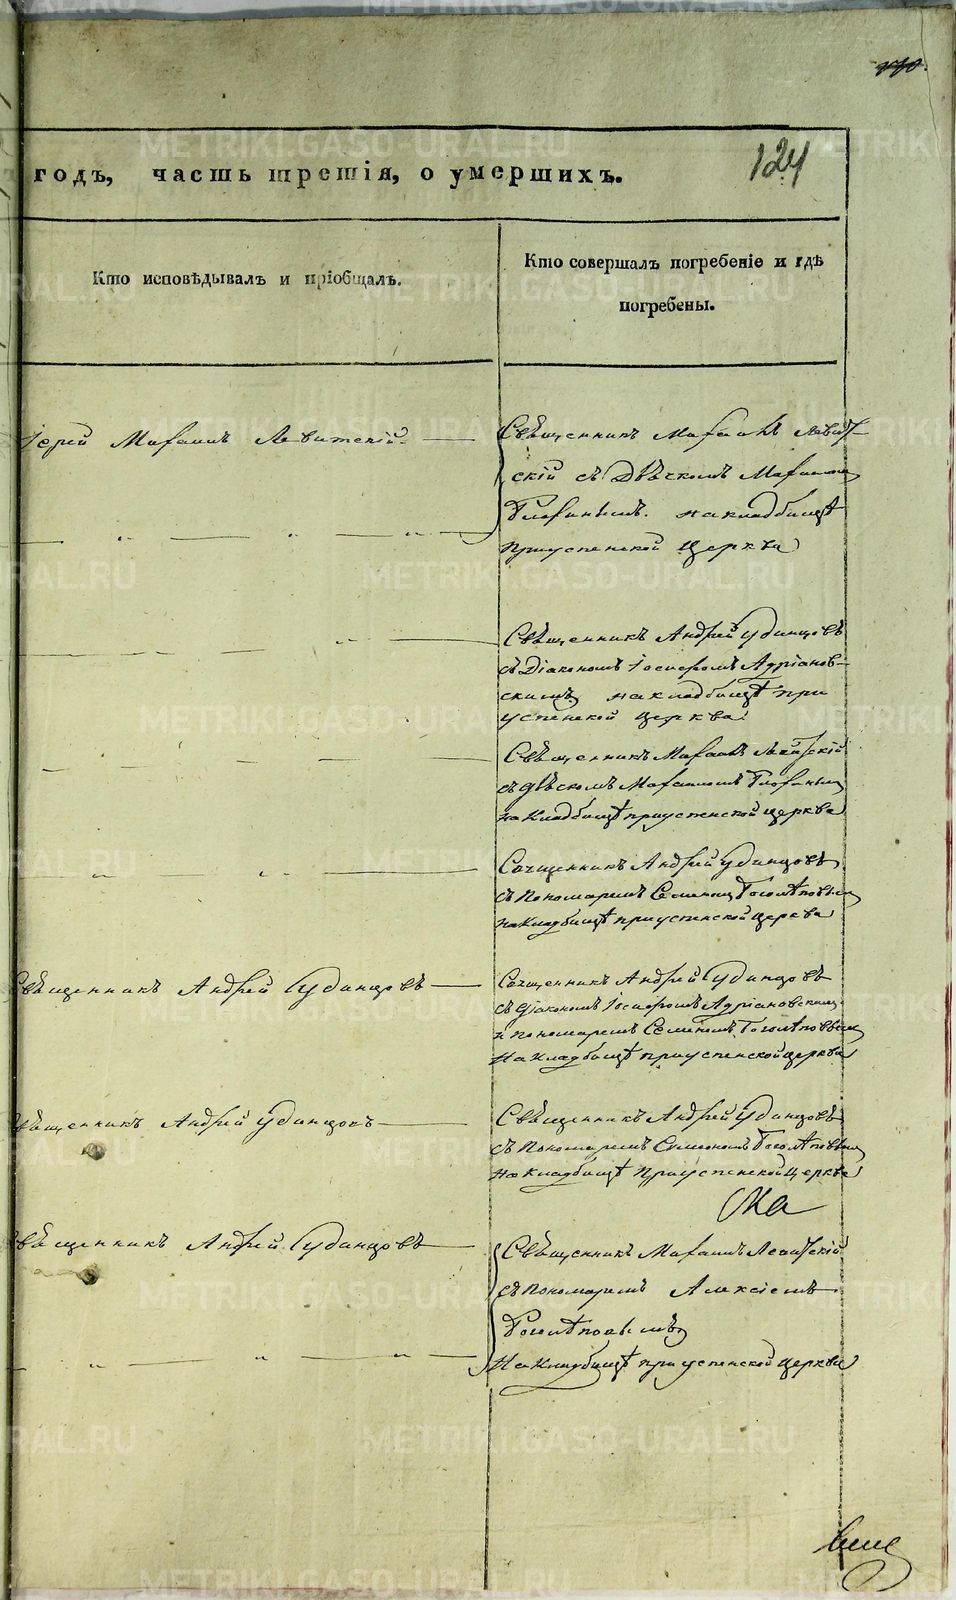 124
годъ, часть третія, о умершихъ.
Кто исповѣдывалъ и пріобщалъ.
Кто совершалъ погребеніе и гдѣ
погребены.
Іерей Михаилъ Левитскій
Священникъ Михаилъ Левит-
скій съ Дьяскомъ Михаиломъ
на кладбищѣ
приуспенской церкви
Священникъ Андрей Удинцовъ
съ Діакономъ Іосифомъ Адріанов-
скимъ на кладбищѣ при
успенской церкви.
Священникъ Михаилъ Левитскій
съ Дьяскомъ Михаиломъ
на Кладбищѣ приуспенской церкви
Священникъ Андрей Удинцовъ
съ Пономаремъ
на Кладбищѣ приуспенской церкви
Священникъ Андрей Удинцовъ
Священникъ Андрей Удинцовъ
съ Діакономъ Іосифомъ Адріановскимъ
и пономаремъ
На Кладбищѣ приуспенской церкви
Священникъ Андрей Удинцовъ
Священникъ Андрей Удинцовъ
съ Пономаремъ
на Кладбищѣ Приуспенской Церкви
Священникъ Андрей Удинцовъ
Священникъ Михаилъ Левитскій
съ пономаремъ Алексіемъ
На Кладбищѣ приуспенской церкви
METRIKI.GASO-URAL.RU